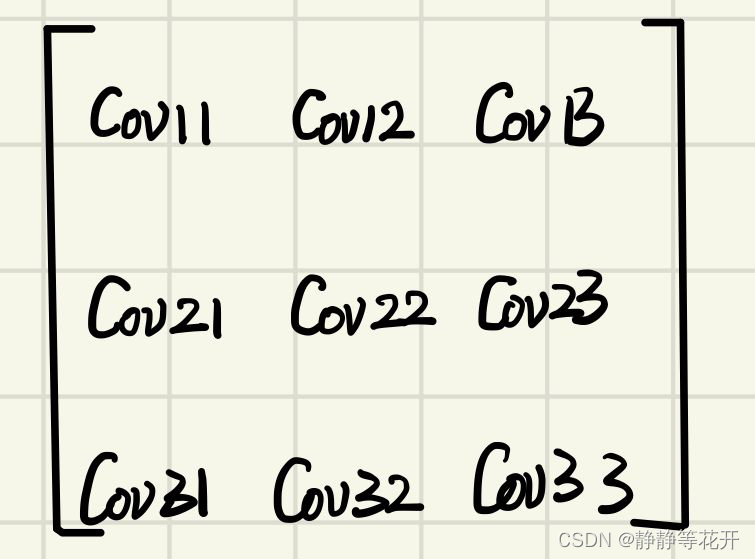 Cov11 Cov12 Cov13
Cov21 Cov22 Cov23
Cov31 Cov32 Cov33
CSDN @静静等花开